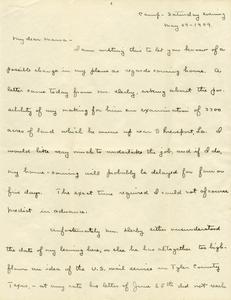 Camp - Saturday evening
May 29 - 1909
My dear Mama -
I am writing this to let you know of a
possible change in my plans as regards coming home. A
letter came today from Mr. Sterly, asking about the pos-
sibility of my making for him an examination of 3300
acres of land which he owns up near Shreveport, La. I
would like very much to undertake the job, and if I do,
my home-coming will probably be delayed for four or
five days. The exact time required I could not of course
predict in advance.
Unfortunately Mr. Sterly either misunderstood
the date of my leaving here, or else he has altogether too high-
flown an idea of the U.S. mail service in Tyler County
Texas, - at any rate his letter of the did not reach